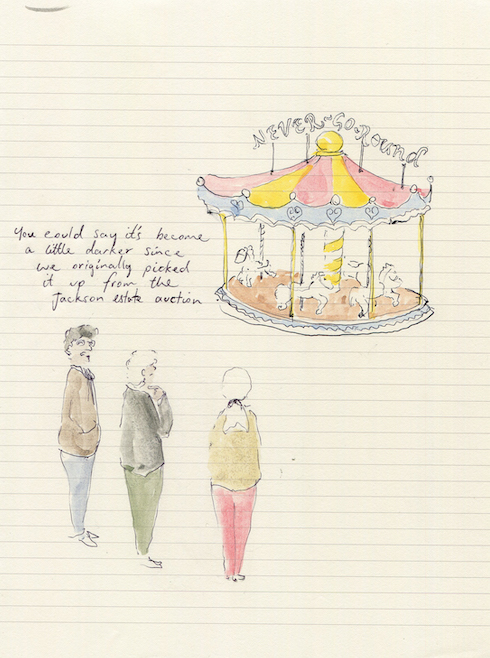 NEVER-GO-ROUND
You could say it's become
a little darker since
we originally picked
it up from the
Jackson estate auction